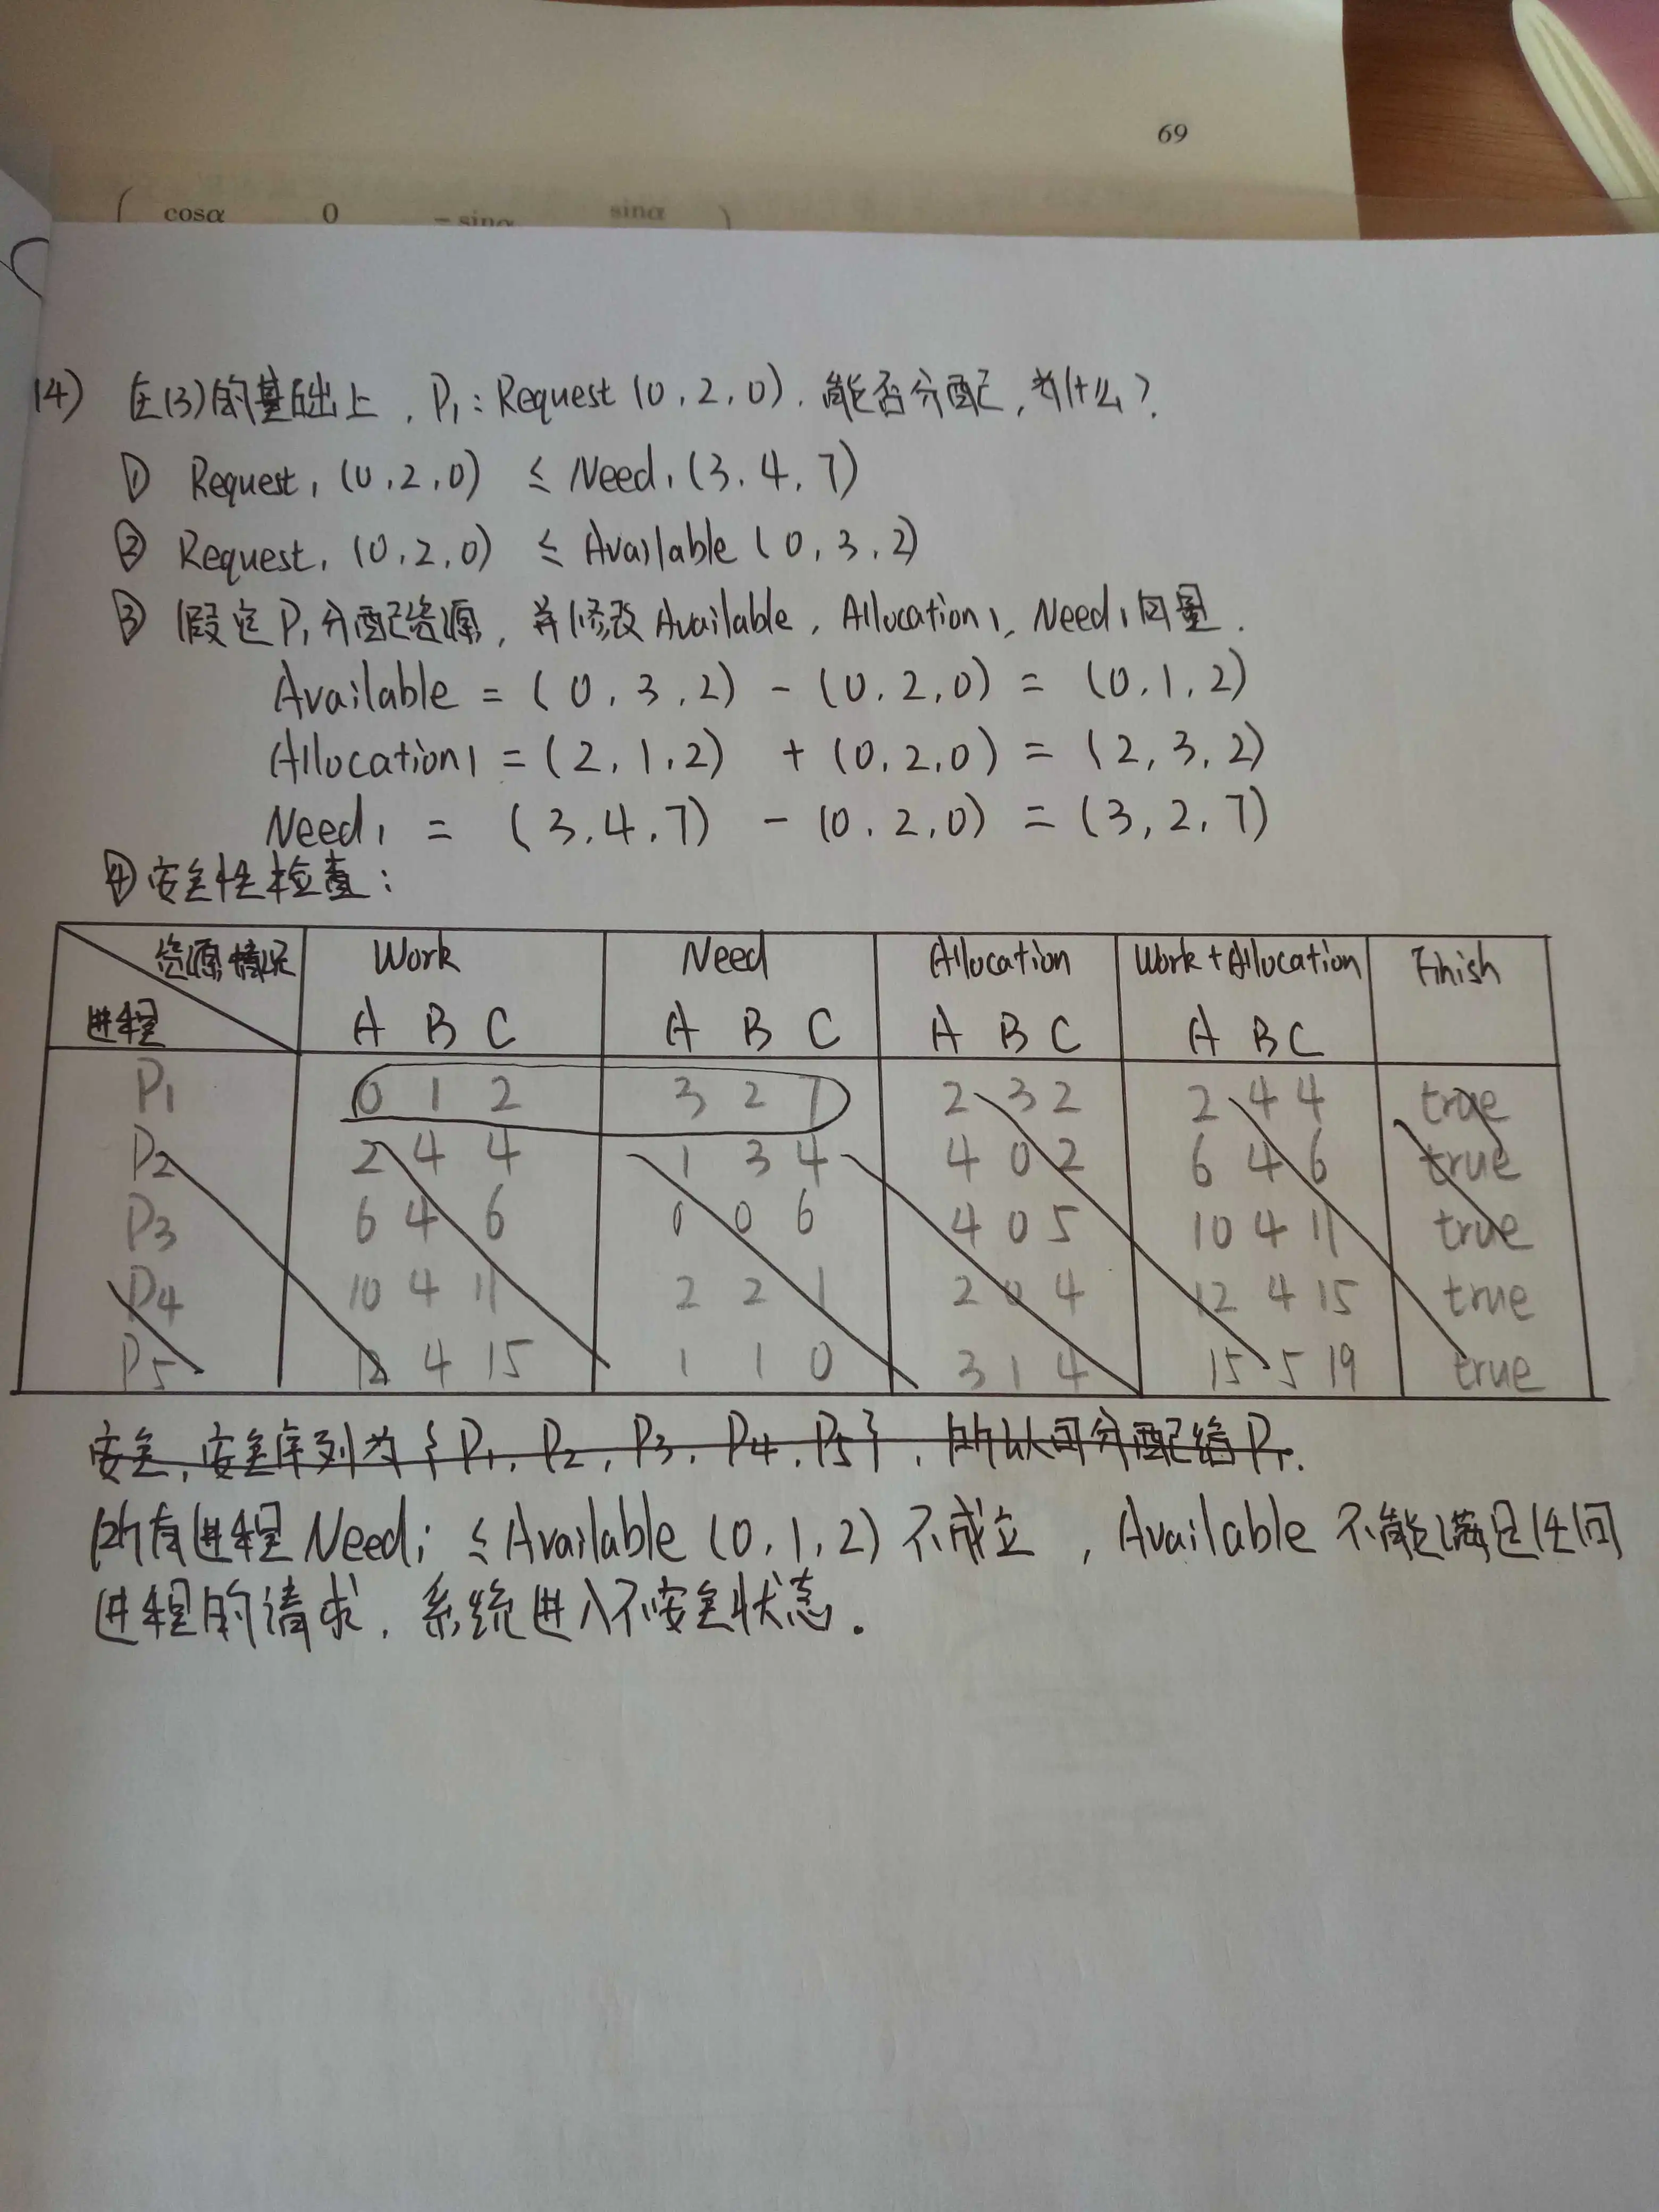 69
cosα 0 -sinα sinα
(4) 在(3)的基础上，P₁: Request (0,2,0). 能否分配，为什么？
① Request₁ (0,2,0) ≤ Need₁ (3,4,7)
② Request₁ (0,2,0) ≤ Available (0,3,2)
③ 假定P₁分配资源，并修改Available, Allocation1, Need₁向量.
Available = (0,3,2) - (0,2,0) = (0,1,2)
Allocation1 = (2,1,2) + (0,2,0) = (2,3,2)
Need₁ = (3,4,7) - (0,2,0) = (3,2,7)
④安全性检查:
资源情况 Work Need Allocation Work+Allocation Finish
进程 A B C A B C A B C A B C
P1 0 1 2 3 2 7 2 3 2 2 4 4 true
P2 2 4 4 1 3 4 4 0 2 6 4 6 true
P3 6 4 6 0 0 6 4 0 5 10 4 11 true
P4 10 4 11 2 2 1 2 0 4 12 4 15 true
P5 12 4 15 1 1 0 3 1 4 15 5 19 true
安全，安全序列为{P₁, P₂, P₃, P₄, P₅}，所以可分配给P₁.
所有进程 Needi ≤ Available (0,1,2) 不成立，Available 不能满足任何
进程的请求，系统进入不安全状态。